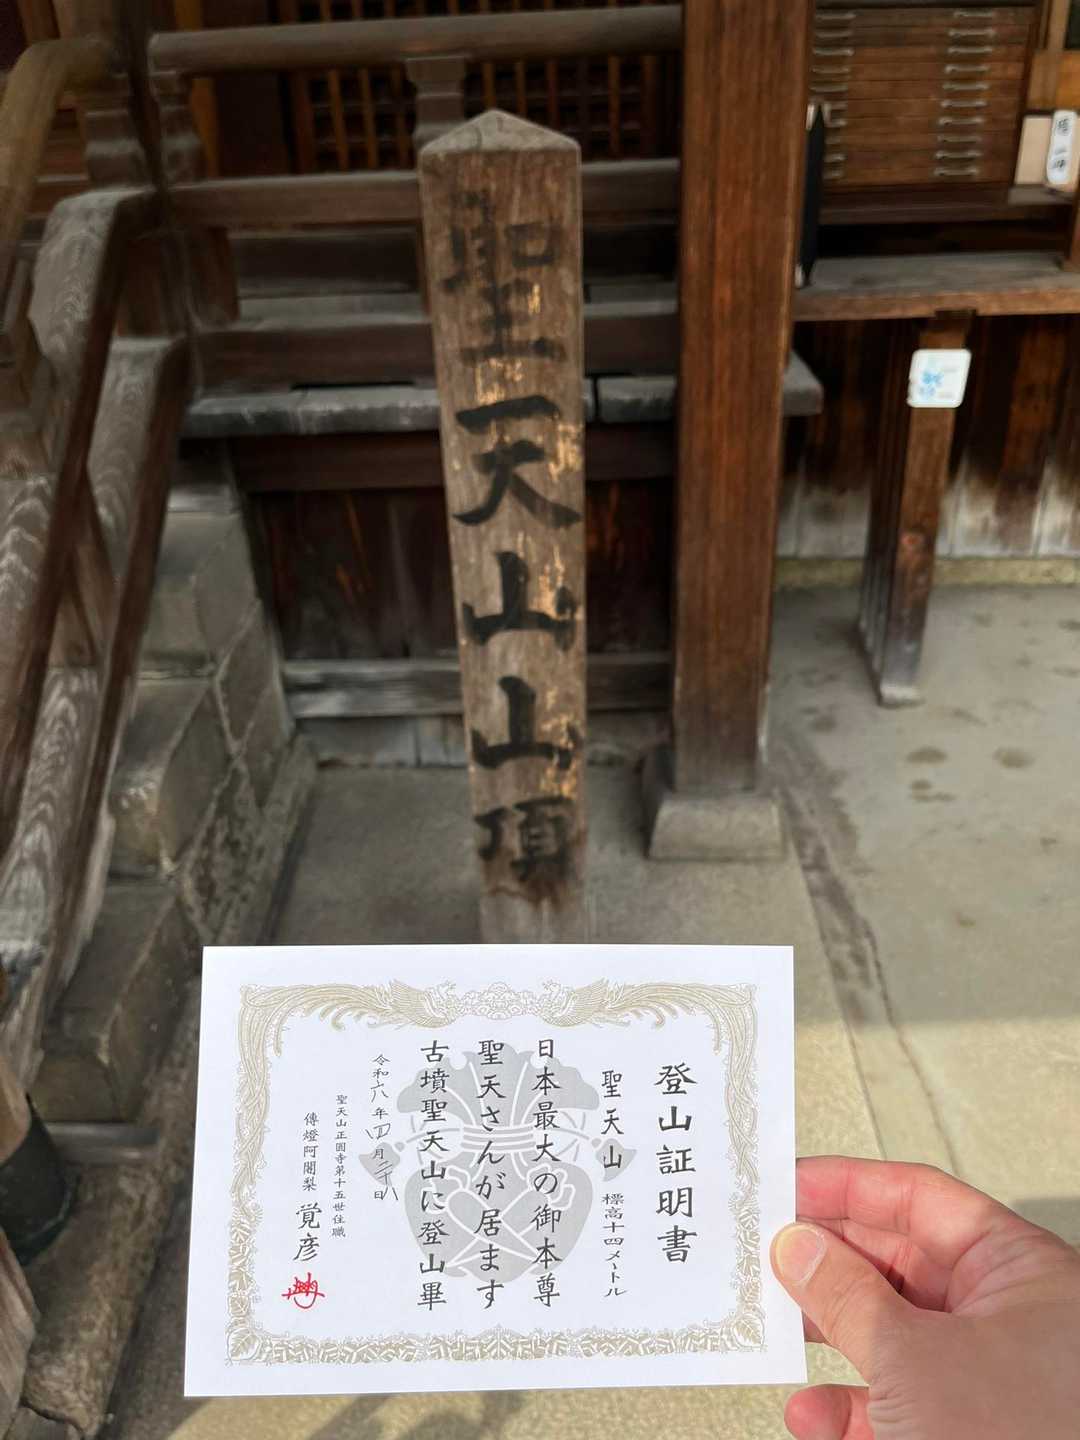 聖天山山頂
登山証明書
聖天山 標高十四メートル
日本最大の御本尊
聖天さんが居ます
古墳聖天山に登山畢
令和六年四月二十八日
聖天山正圓寺第十五世住職
傳燈阿闍梨 覚彦